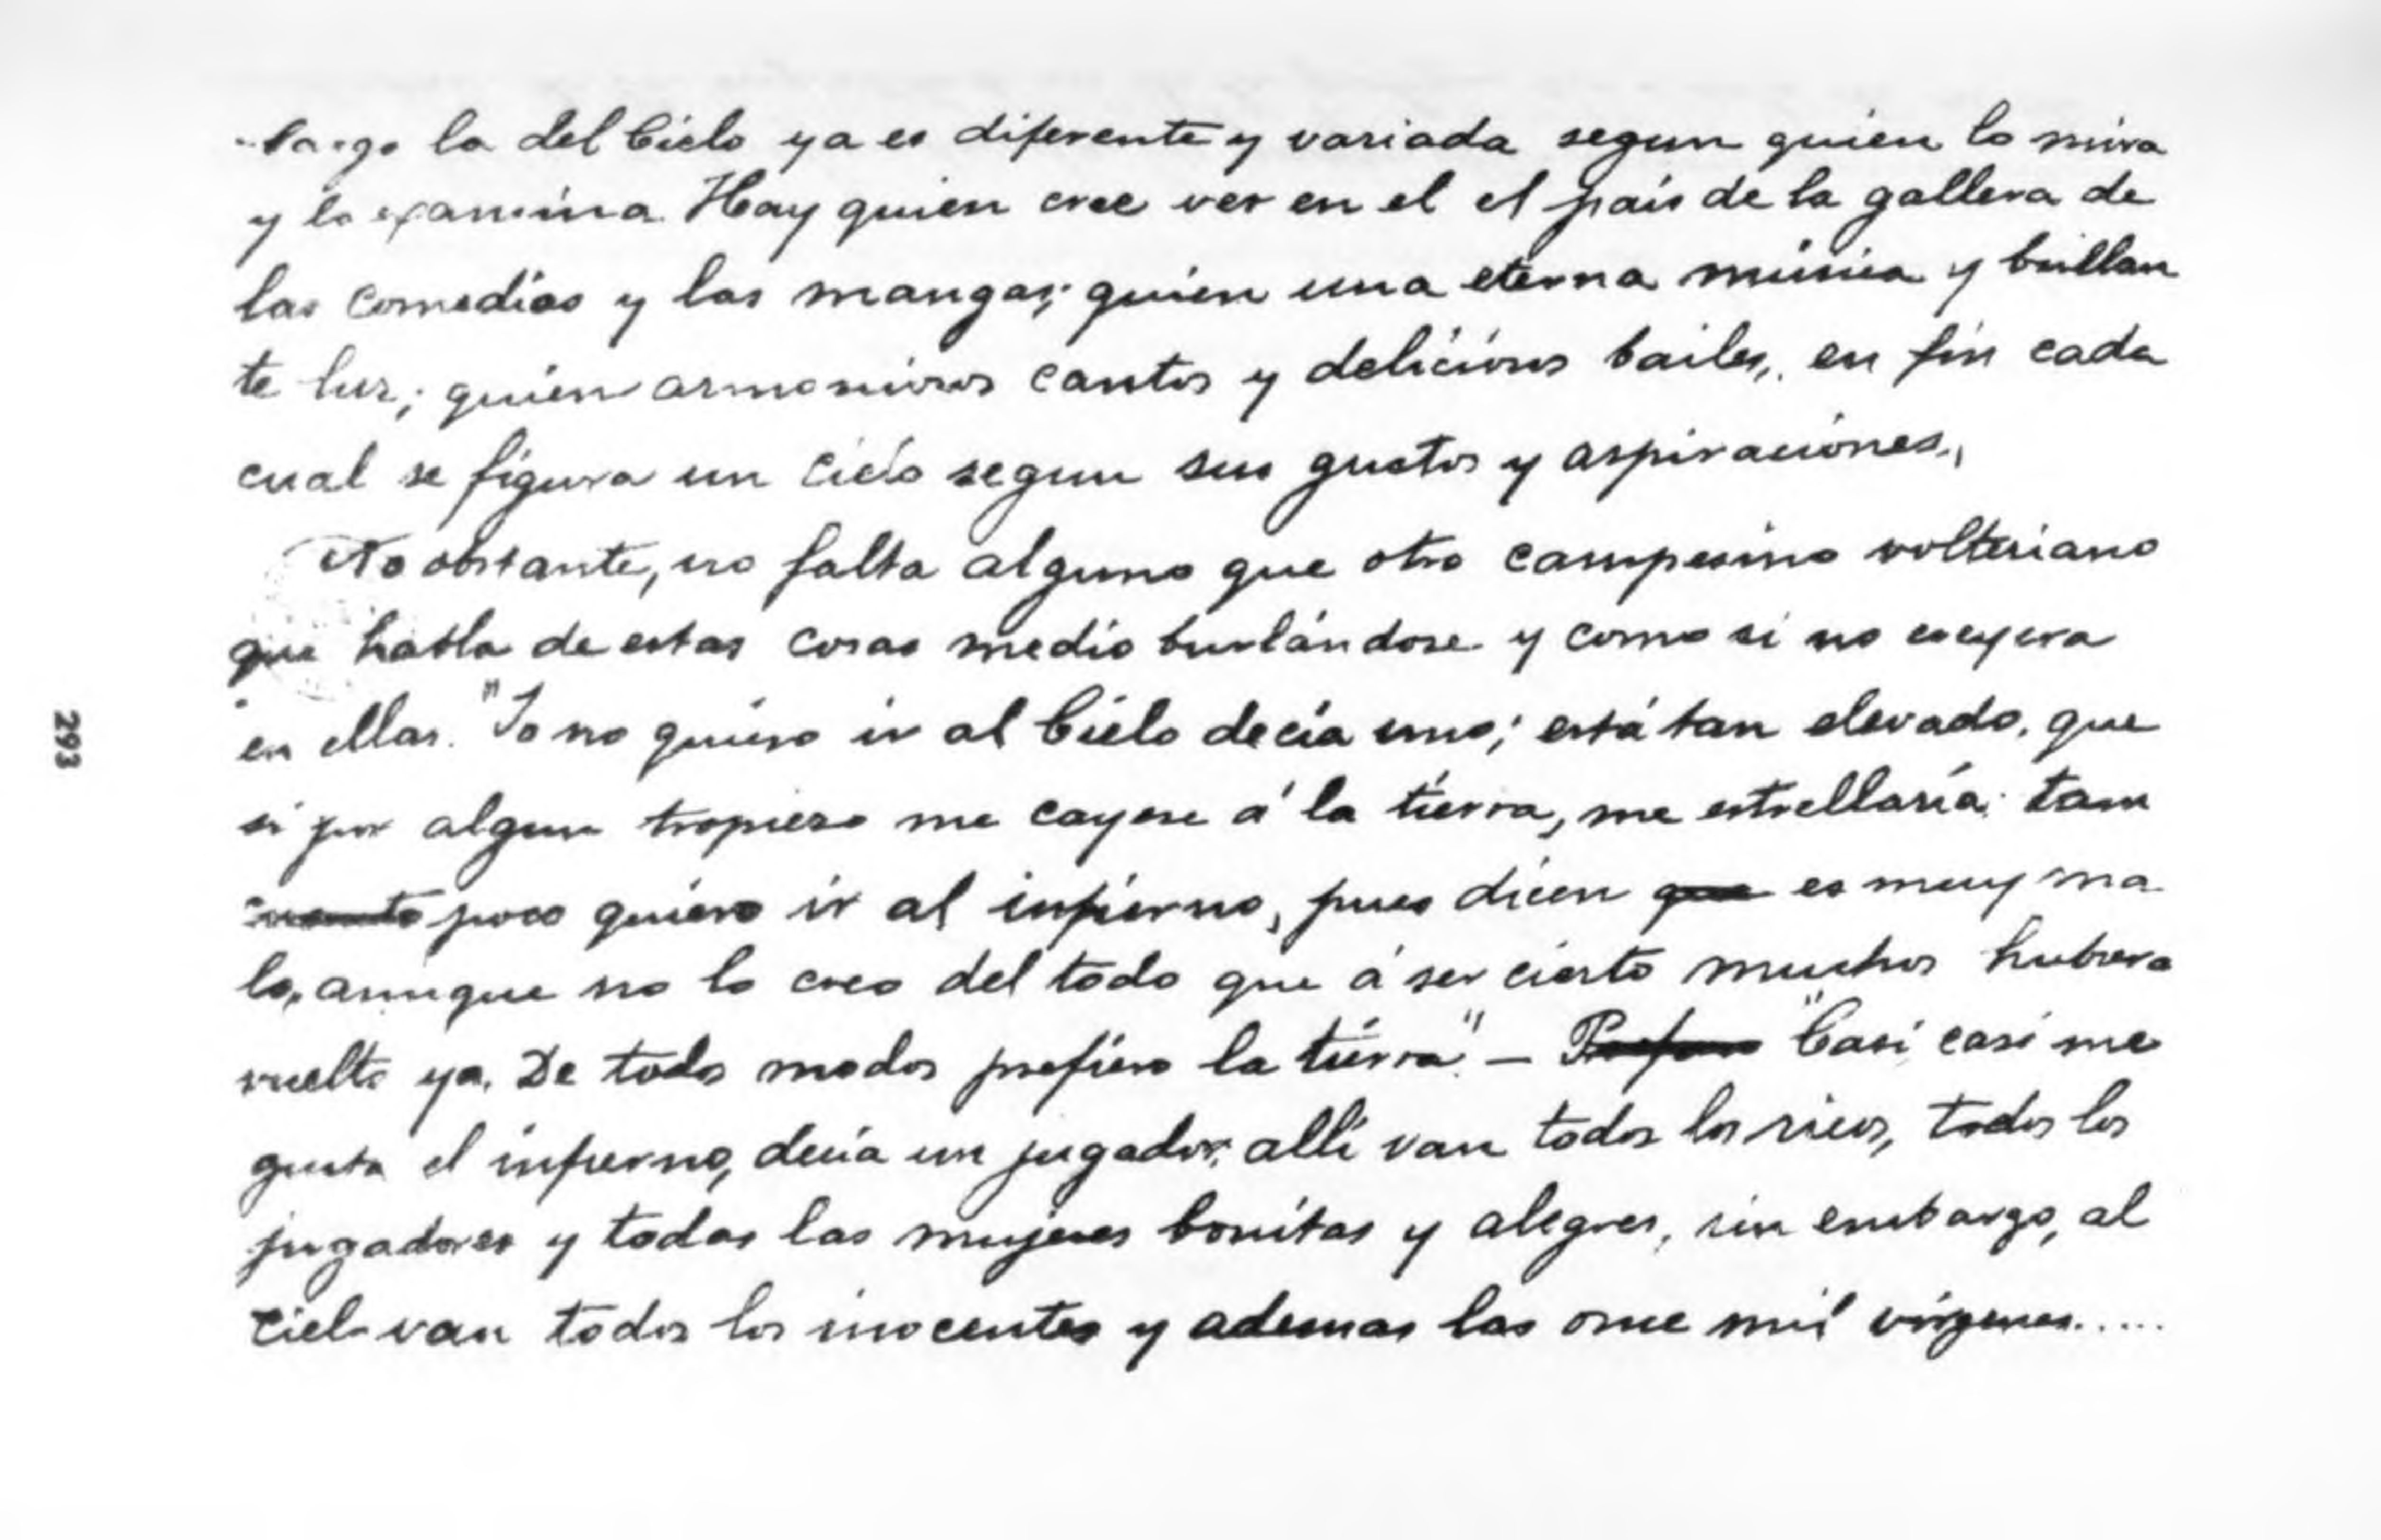 bargo la del Cielo ya es diferente y variada segun quien lo mira
y lo examina. Hay quien cree ver en el el país de la gallera de
las comedias y las mangas; quien una eterna música y brillan
te luz; quien armoniosos cantos y deliciosos bailes, en fin cada
cual se figura un cielo segun sus gustos y aspiraciones.,
No obstante, no falta alguno que otro campesino volteriano
que habla de estas cosas medio burlándose y como si no creyera
en ellas. "Yo no quiero ir al Cielo decía uno; está tan elevado, que
si por algun tropiezo me cayese á la tierra, me estrellaría; tam
poco quiero ir al infierno, pues dicen que es muy ma
lo, aunque no lo creo del todo que á ser cierto muchos hubiera
vuelto ya. De todos modos prefiero la tierra." — "Casi casi me
gusta el infierno, decía un jugador; allí van todos los ricos, todos los
jugadores y todas las mujeres bonitas y alegres, sin embargo, al
cielo van todos los inocentes y ademas las once mil vírgenes.....
293